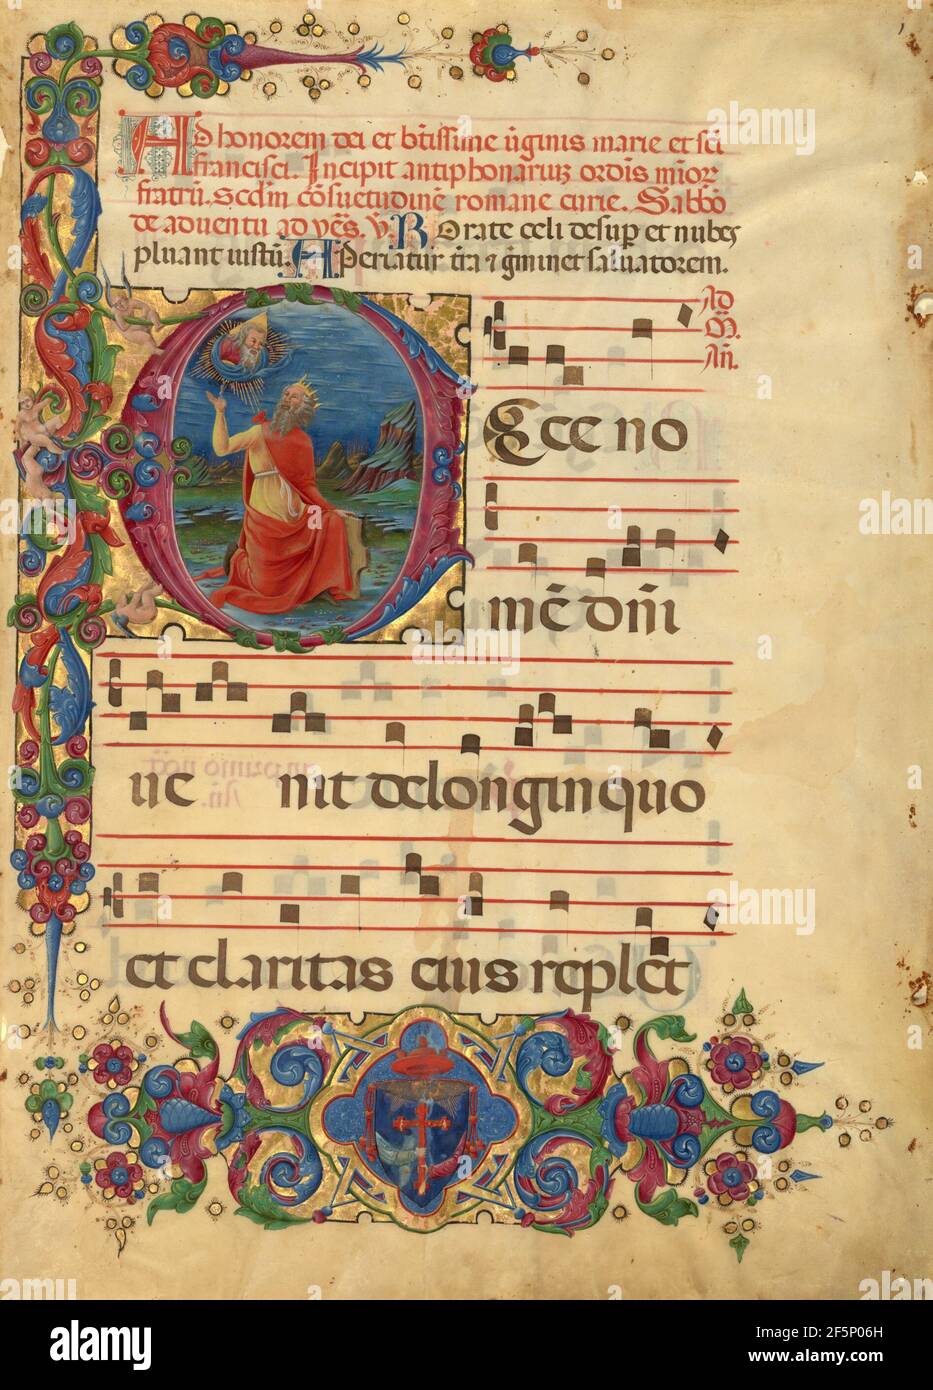 Ad honorem dei et btissime ũginis marie et sci
francisci. Incipit antiphonariuz ordĩs mĩor
fratrũ. Scdm cõsuetudinẽ romane curie. Sabbõ
de aduentu ad ves. v. Rorate celi desup et nubes
pluant iustũ. Aperiatur tra ⁊ gminet saluatorem.
Ad
M̃
Añ.
Ecce no
mẽ dñi
ue nit de longinquo
et claritas eius replet
alamy
Image ID: 2F5P06H
www.alamy.com